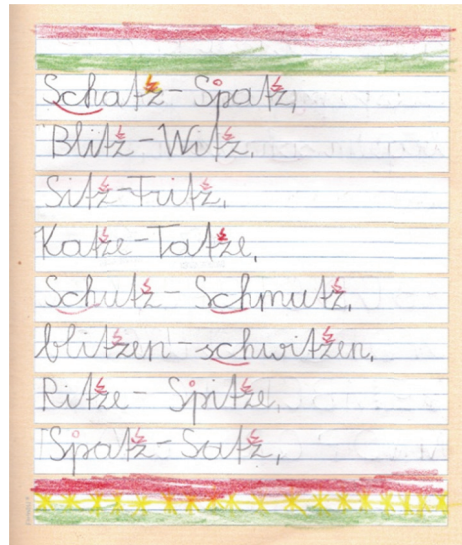 Schatz - Spatz,
Blitz - Witz,
Sitz - Fritz,
Katze - Tatze,
Schutz - Schmutz,
blitzen - schwitzen,
Ritze - Spitze,
Spatz - Satz,